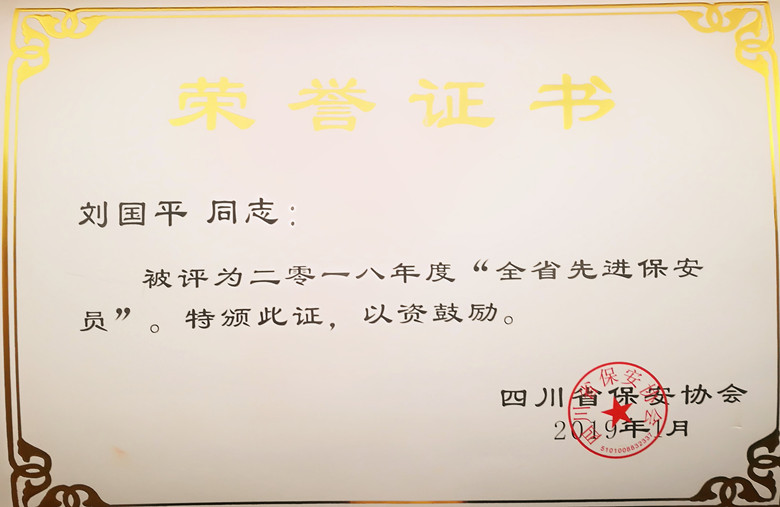 荣誉证书
刘国平 同志：
被评为二零一八年度“全省先进保安
员”。特颁此证，以资鼓励。
四川省保安协会
2019年1月
四川省保安协会